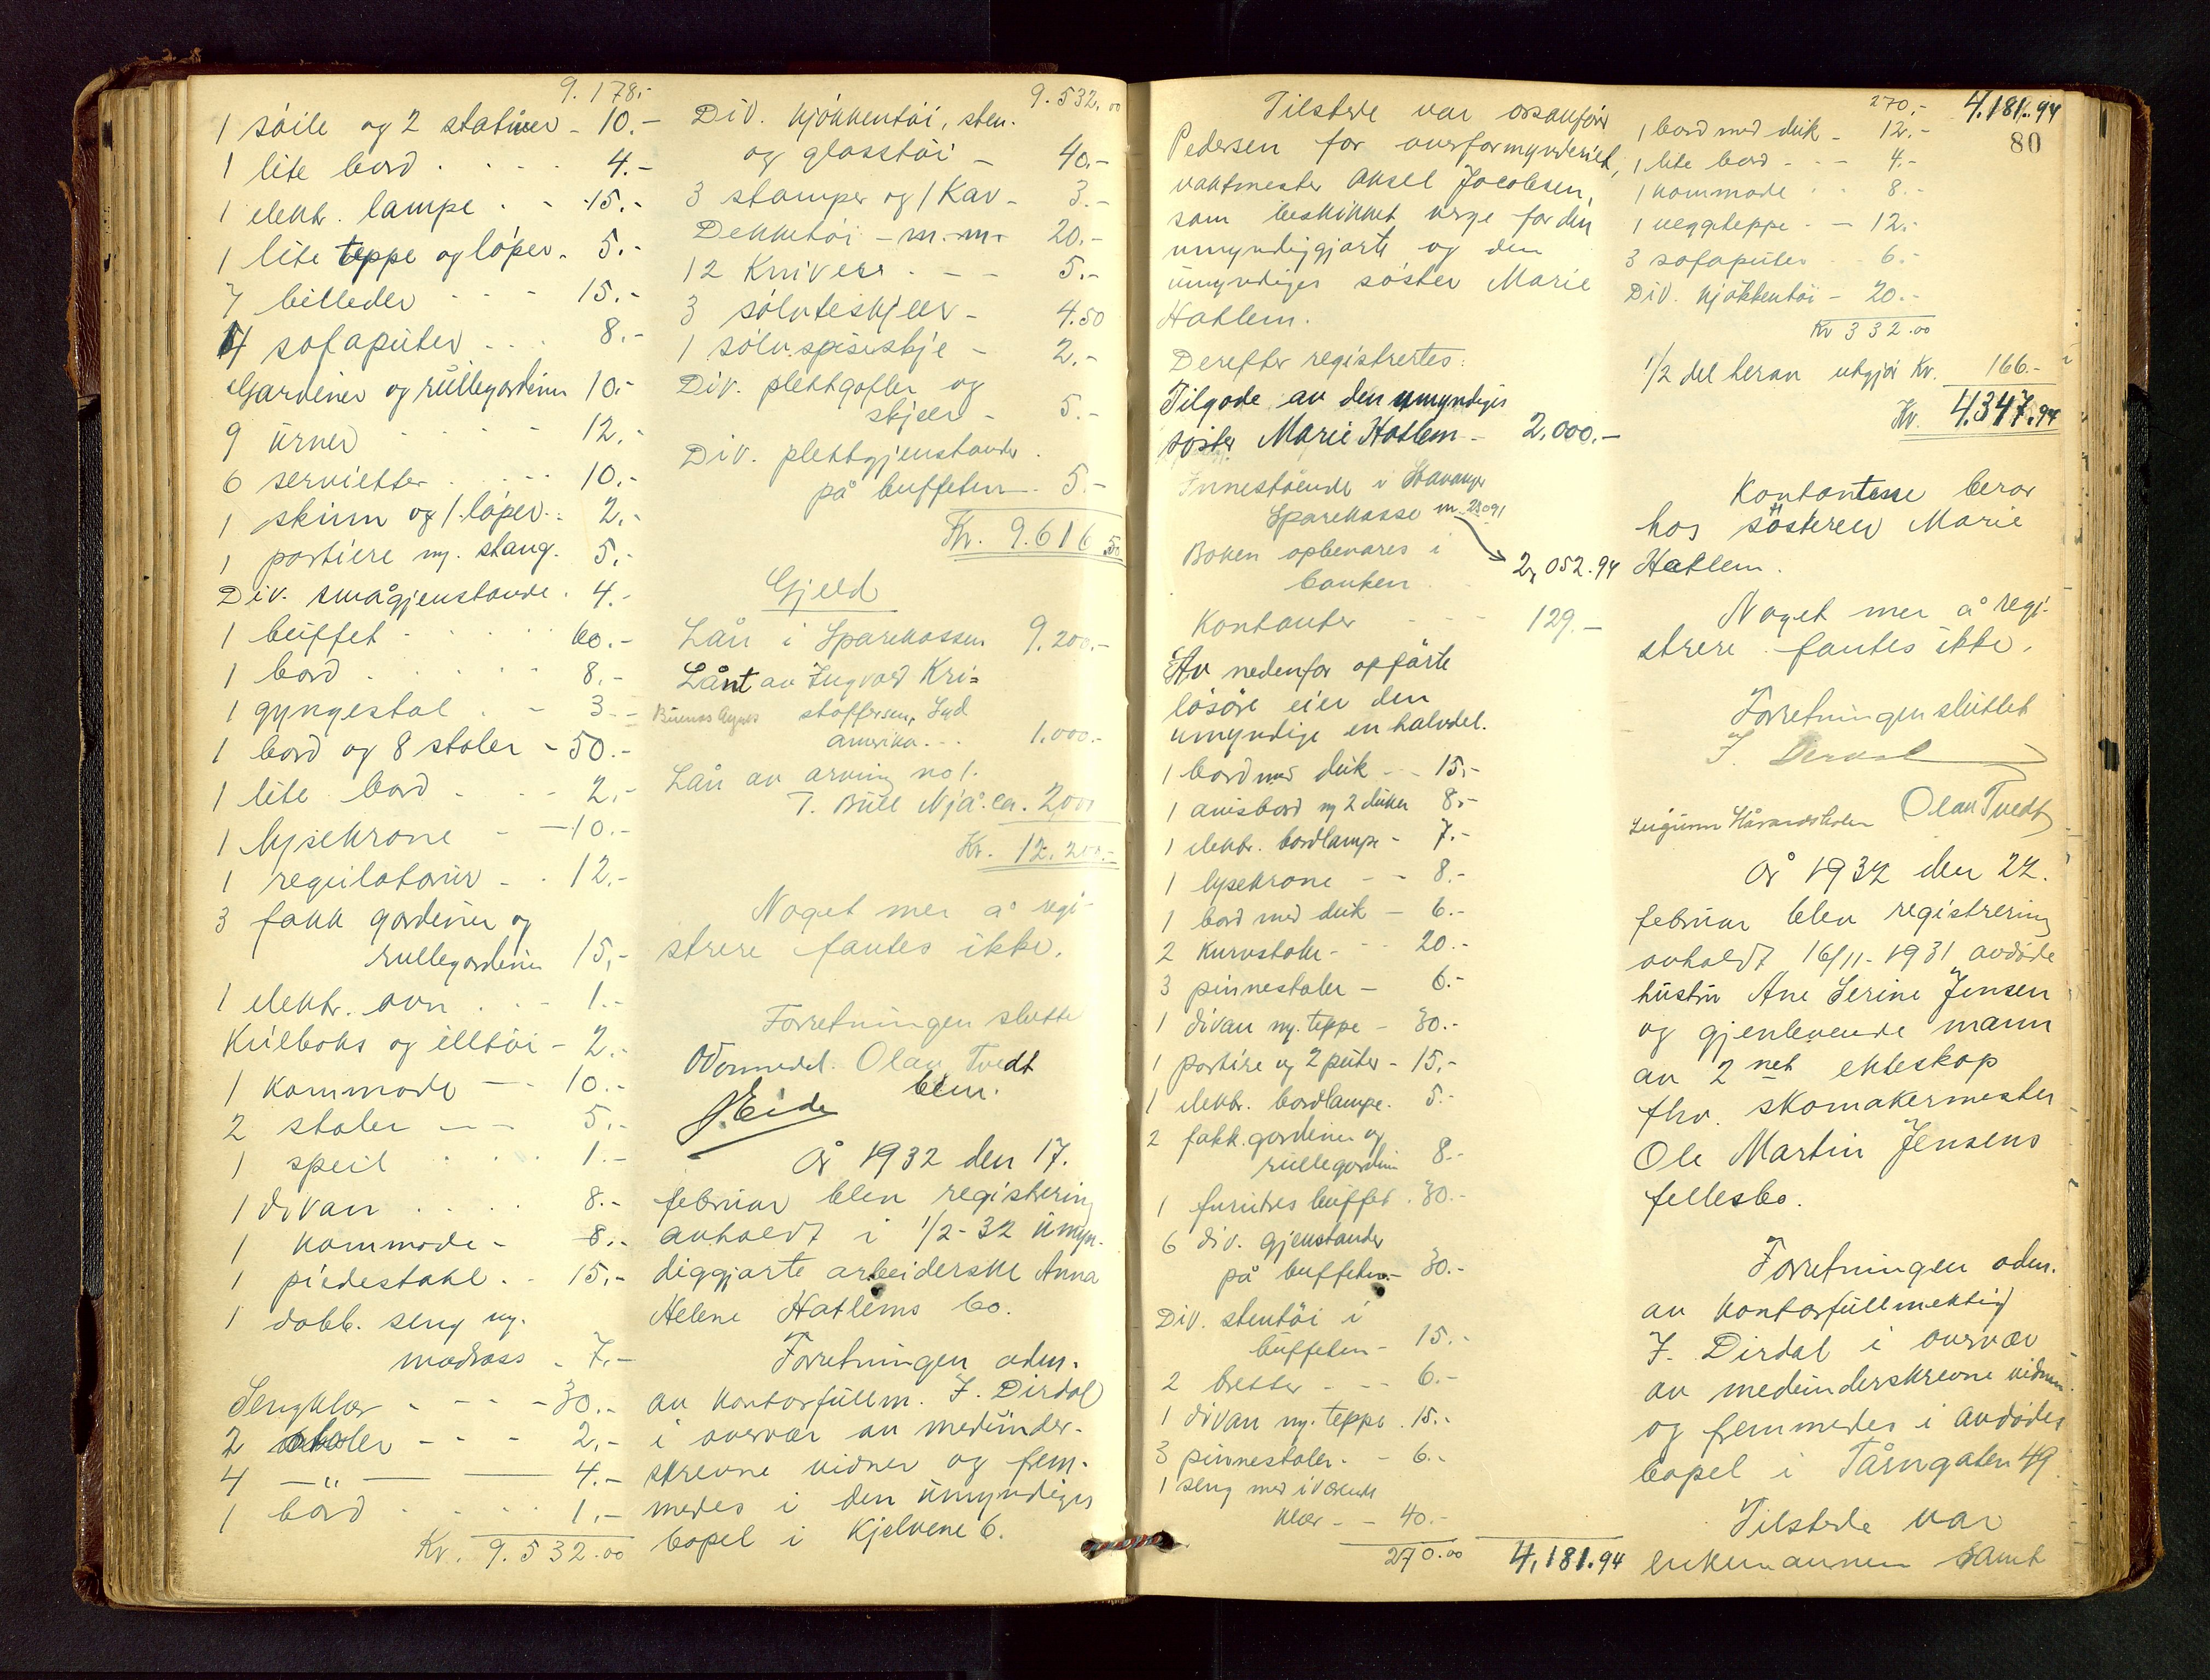 9.178.-
1 söile og 2 statuer - 10.-
1 lite bord . . . . 4.-
1 elektr. lampe . - 15.-
1 lite teppe og löper. 5.-
7 billeder - - - 15.-
4 sofaputer - . . . 8.-
Gardiner og rullegardiner 10.-
9 urner - - - - 12.-
6 servietter . . . . 10.-
1 skinn og 1 löper . . 2.-
1 portiere m. stang. 5.-
Div. smågjenstande . 4.-
1 buffet . . . . . 60.-
1 bord . . . . . 8.-
1 gyngestol . - 3.-
1 bord og 8 stoler - 50.-
1 lite bord . . - 2.-
1 lysekrone - - 10.-
1 regulatorur - . 12.-
3 fakk gardiner og
rullegardiner 15.-
1 elektr. ovn . . - 1.-
Kulboks og illtöi - 2.-
1 kommode - - 10.-
2 stoler - - 5.-
1 speil . . . . 1.-
1 divan . . . . 8.-
1 kommode - 8.-
1 piedestahl . - 15.-
1 dobb. seng m.
madrass - 7.-
Sengklær - - - - 30.-
2 stoler - - - 2.-
4 -"- 4.-
1 bord . . . . 1.-
Kr. 9.532.00
9.532.00
Div. kjökkentöi, sten-
og glasstöi - 40.-
3 stamper og 1 kar - 3.-
Dekketöi - m.m. 20.-
12 kniver . - - 5.-
3 sölvteskjeer - 4.50
1 sölv.spiseskje - 2.-
Div. plettgafler og
skjeer - 5.-
Div. plettgjenstander
på buffeten. 5.-
Kr. 9.616.50
Gjeld
Lån i Sparekassen 9.200.-
Lånt av Ingvald Kri=
Buenos Ayres stoffersen, Syd
amerika . . . 1.000.-
Lån av arving no 1.
T. Bull Njå. ca. 2.000
Kr. 12.200.-
Noget mer å regi-
strere fantes ikke.
Forretningen slutte
Olav Tvedt
bem.
J. Eide
År 1932 den 17.
februar blev registrering
avholdt i 1/2-32 umyn-
diggjorte arbeiderske Anna
Helene Hatlems bo.
Forretningen adm.
av kontorfullm. J. Dirdal
i overvær av medunder-
skrevne vidner og frem-
medes i den umyndiges
bopel i Kjelvene 6.
Tilstede var
Pedersen for overformynderiet,
vaktmester Aksel Jacobsen,
som beskikket verge for den
umyndiggjorte og den
umyndiges söster Marie
Hatlem.
Derefter registrertes:
Tilgode av den umyndiges
söster Marie Hatlem - 2.000.-
Innestående i Stavanger
Sparekasse nr. 23091
Boken opbevares i
banken . . . 2,052.94
Kontanter - - - 129.-
Av nedenfor opförte
lösöre eier den
umyndige en halvdel.
1 bord med duk - - 15.-
1 avisbord m 2 duker 8.-
1 elektr. bordlampe - 7.-
1 lysekrone - - 8.-
1 bord med duk - 6.-
2 kurvstoler - - - 20.-
3 pinnestoler - 6.-
1 divan m. teppe - 30.-
1 portiere og 2 puter - 15.-
1 elektr. bordlampe. 5.-
2 fakk. gardiner og
rullegardin 8.-
1 furutres buffet . 30.-
6 div. gjenstander
på buffeten - 30.-
Div. stentöi i
buffeten - 15.-
2 bretter - - - 6.-
1 divan m. teppe . 15.-
3 pinnestoler . - 6.-
1 seng med iværende
klær - - 40.-
270.00 4,181.94
270.- 4.181.94
80
1 bord med duk - 12.-
1 lite bord - - - 4.-
1 kommode . . 8.-
1 veggteppe - - 12.-
3 sofaputer . . 6.-
Div. kjökkentöi - 20.-
Kr 332.00
1/2 del herav utgjör Kr. 166.-
Kr. 4.347.94
Kontantene beror
hos sösteren Marie
Hatlem.
Noget mer å regi-
strere fantes ikke.
Forretningen sluttet
J. Dirdal
Olav Tvedt
År 1932 den 22.
februar blev registrering
avholdt 16/11-1931 avdöde
hustru Ane Serine Jensen
og gjenlevende mann
av 2net ekteskap
fhv. skomakermester
Ole Martin Jensens
fellesbo.
Forretningen adm.
av kontorfullmektig
J. Dirdal i overvær
av medunderskrevne vidner
og fremmedes i avdödes
bopel i Tårngaten 49.
Tilstede var
enkemannen samt